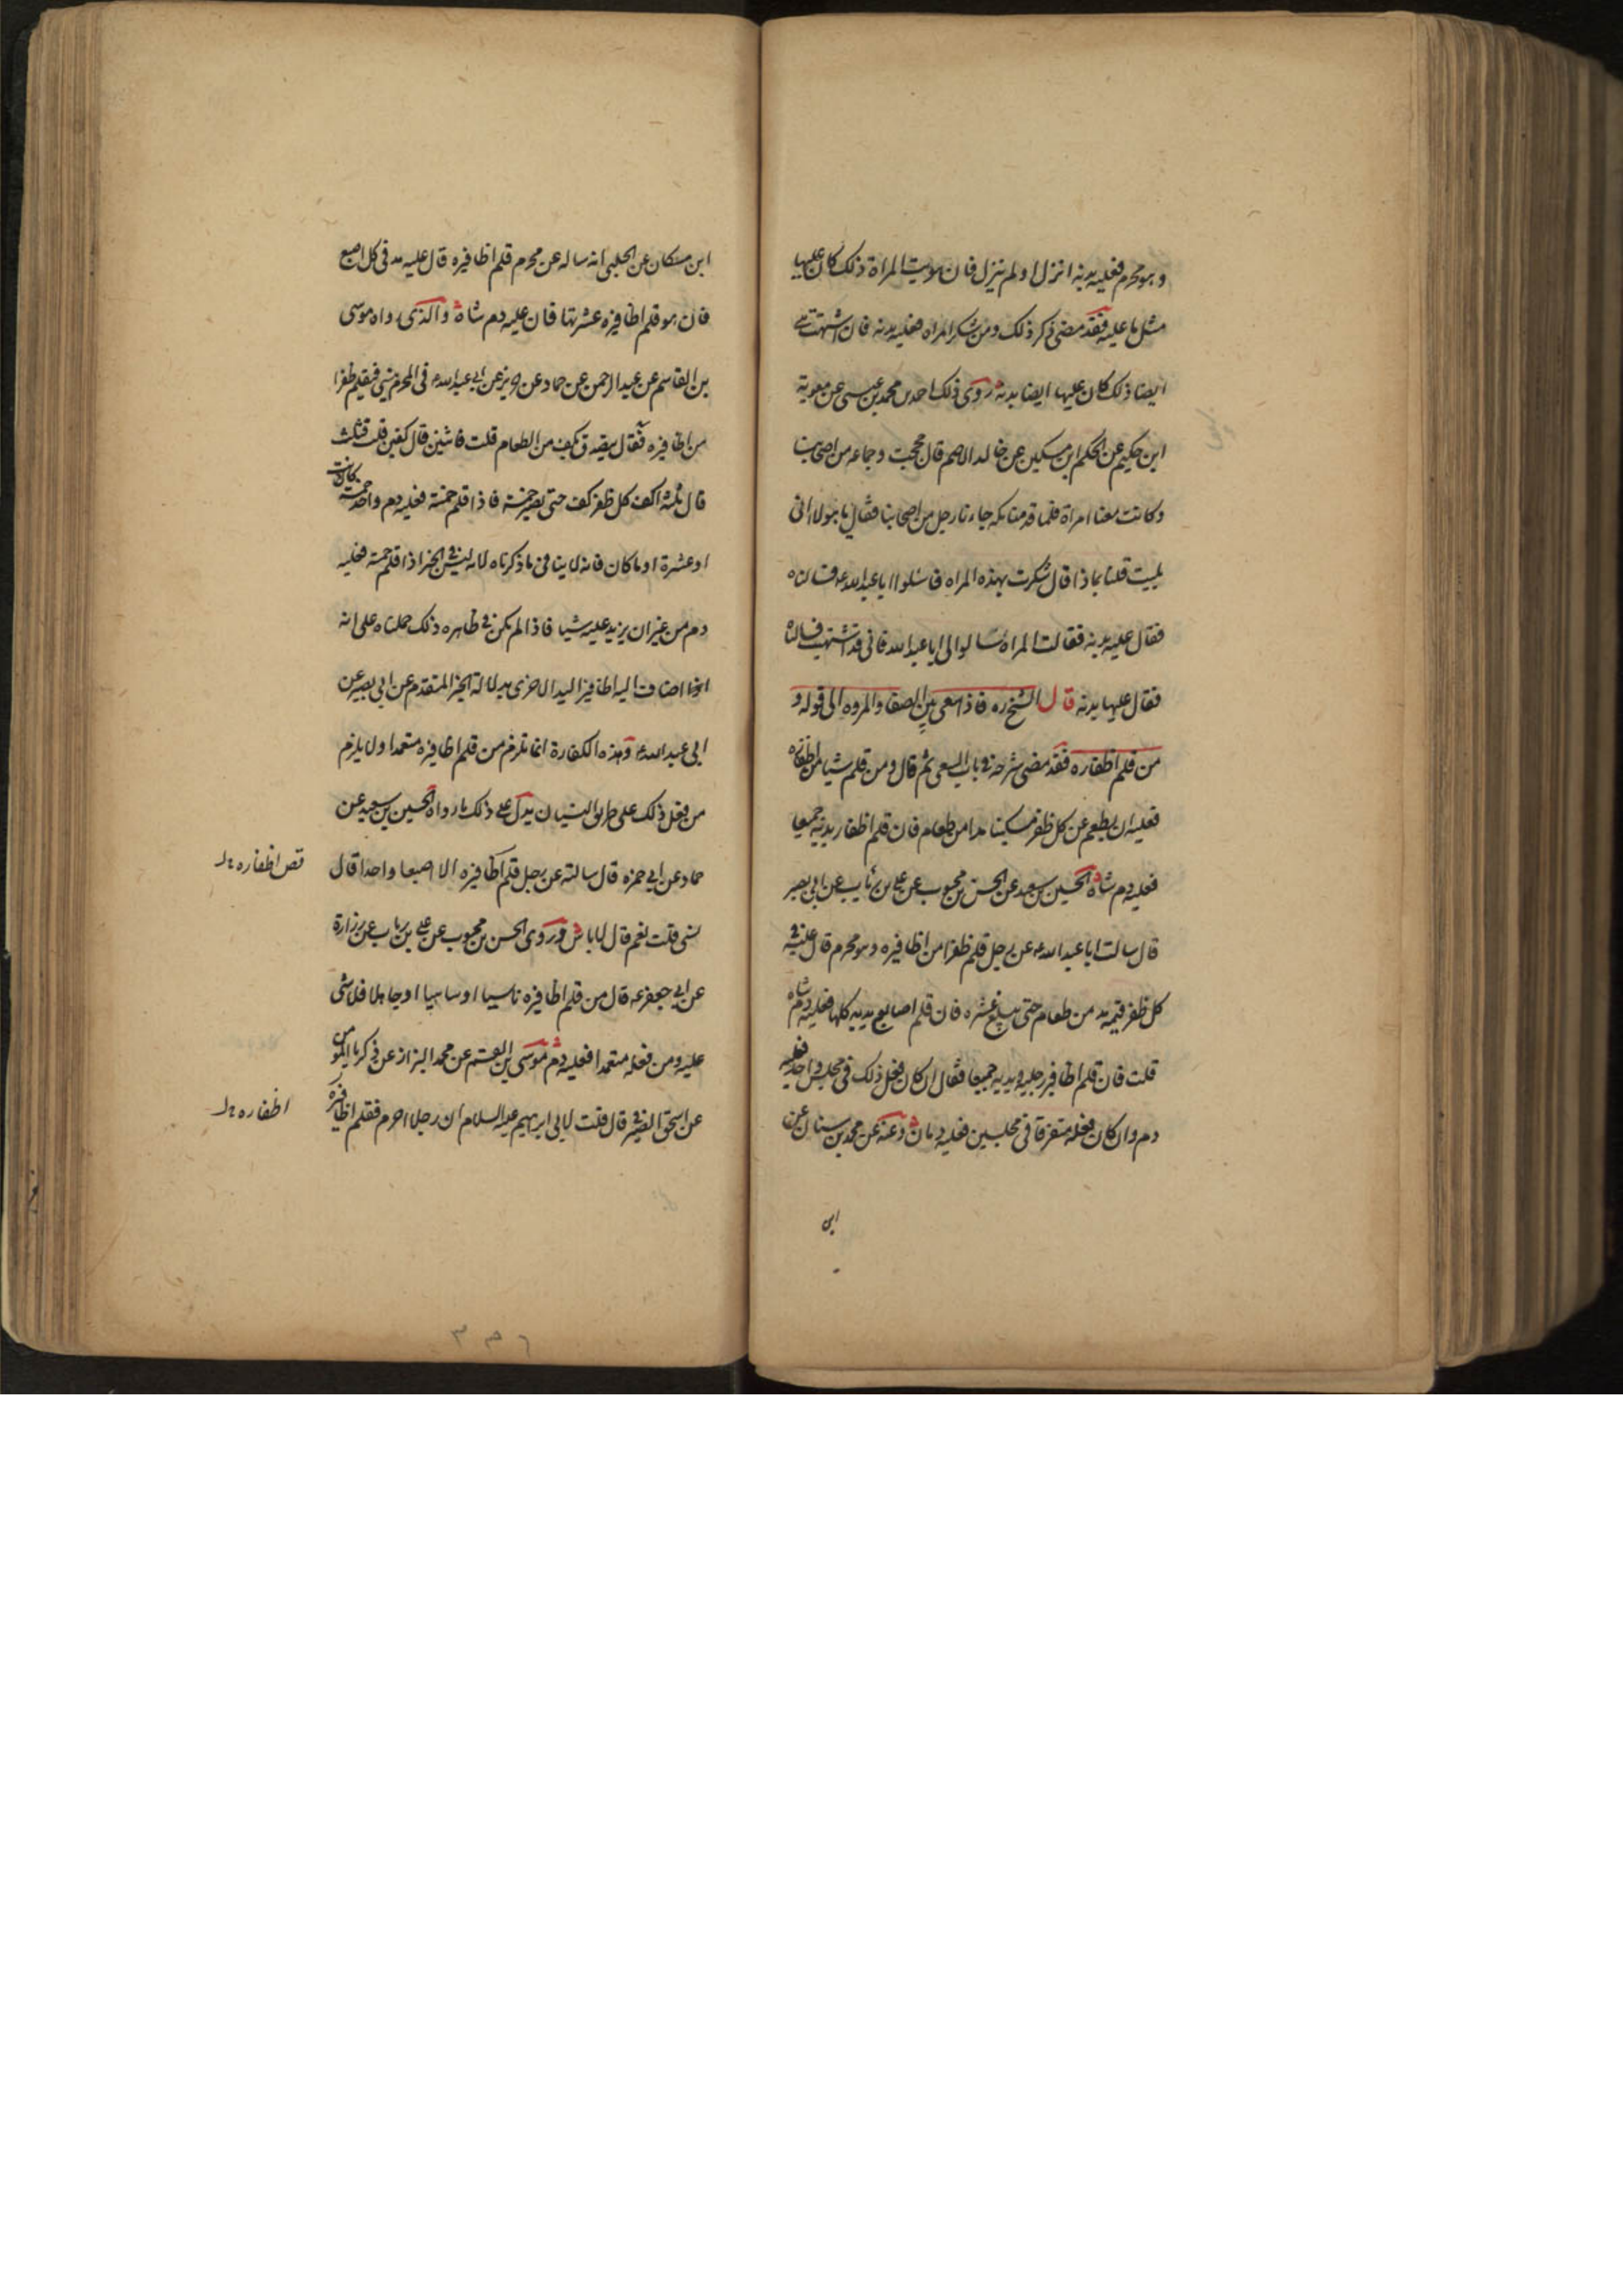 وهو محرم فعليه بدنة انزل او لم ينزل فان هويت المراة ذلك كان عليها
مثل ما عليه فقد مضى ذكر ذلك ومن شكر المراه فعليه بدنه فان اشتهت هي
ايضا ذلك كان عليها ايضا بدنة روى ذلك احمد بن محمد بن عيسى عن معوية
ابن حكيم عن الحكم ابن مسكين عن خالد الاصم قال حججت وجماعه من اصحابنا
وكانت معنا امراة فلما قدمنا مكه جاءنا رجل من اصحابنا فقال يا هولاء انى
بليت قلنا بماذا قال شكرت بهذه المراه فاسئلوا ابا عبد الله ع فسالناه
فقال عليه بدنه فقالت المراه سالوا لى ابا عبد الله فانى قد اشتهيت فسالناه
فقال عليها بدنه قال الشيخ ره فاذا سعى بين الصفا والمروه الى قوله و
من قلم اظفاره فقد مضى شرحه فى باب السعى ثم قال ومن قلم شيا من اظفاره
فعليه ان يطعم عن كل ظفر مسكينا مدا من طعام فان قلم اظفار يديه جميعا
فعليه دم شاة الحسين بن سعيد عن الحسن بن محبوب عن على بن رئاب عن ابى بصير
قال سالت ابا عبد الله ع عن رجل قلم ظفرا من اظافيره وهو محرم قال عليه فى
كل ظفر قيمه مد من طعام حتى يبلغ عشره فان قلم اصابع يديه كلها فعليه دم شاه
قلت فان قلم اظافير رجليه ويديه جميعا فقال ان كان فعل ذلك فى مجلس واحد فعليه
دم وان كان فعله متفرقا فى مجلسين فعليه دمان وعنه عن محمد بن سنان عن
ابن
ابن مسكان عن الحلبى انه ساله عن محرم قلم اظافيره قال عليه مد فى كل اصبع
فان هو قلم اظافيره عشرتها فان عليه دم شاة والذى رواه موسى
بن القاسم عن عبد الرحمن عن حماد عن حريز عن ابى عبد الله ع فى المحرم ينسى فيقلم ظفرا
من اظافيره فقال يتصدق بكف من الطعام قلت فاثنين قال كفين قلت فثلث
قال ثلثه اكف كل ظفر كف حتى يصير خمسة فاذا قلم خمسة فعليه دم واحد خمسة كانت
او عشرة او ما كان فانه لا ينافى ما ذكرناه لانه ليس فى الخبر اذا قلم خمسة فعليه
دم من غير ان يزيد عليه شيا فاذا لم يكن فى ظاهره ذلك حملناه على انه
اذا اضاف اليه اظافير اليد الاخرى بدلالة الخبر المتقدم عن ابى بصير عن
ابى عبد الله ع وهذه الكفارة انما تلزم من قلم اظافيره متعمدا ولا يلزم
من فعل ذلك على طريق النسيان يدل على ذلك ما رواه الحسين بن سعيد عن
حماد عن ابى حمزه قال سالته عن رجل قلم اظافيره الا اصبعا واحدا قال
نسى قلت نعم قال لا باس وروى الحسن بن محبوب عن على بن رياب عن زرارة
عن ابى جعفر ع قال من قلم اظافيره ناسيا او ساهيا او جاهلا فلا شى
عليه ومن فعله متعمدا فعليه دم موسى بن القسم عن محمد البزاز عن زكريا المومن
عن اسحق الصيرفى قال قلت لابى ابرهيم عليه السلام ان رجلا احرم فقلم اظافيره
قص اظفاره
اظفاره